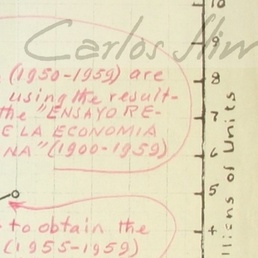 Carlos Slim
(1950-1959) are
using the result-
the "ENSAYO RE-
E LA ECONOMIA
NA" (1900-1959)
to obtain the
(1955-1959)
10
9
8
7
6
5
4
llions of Units